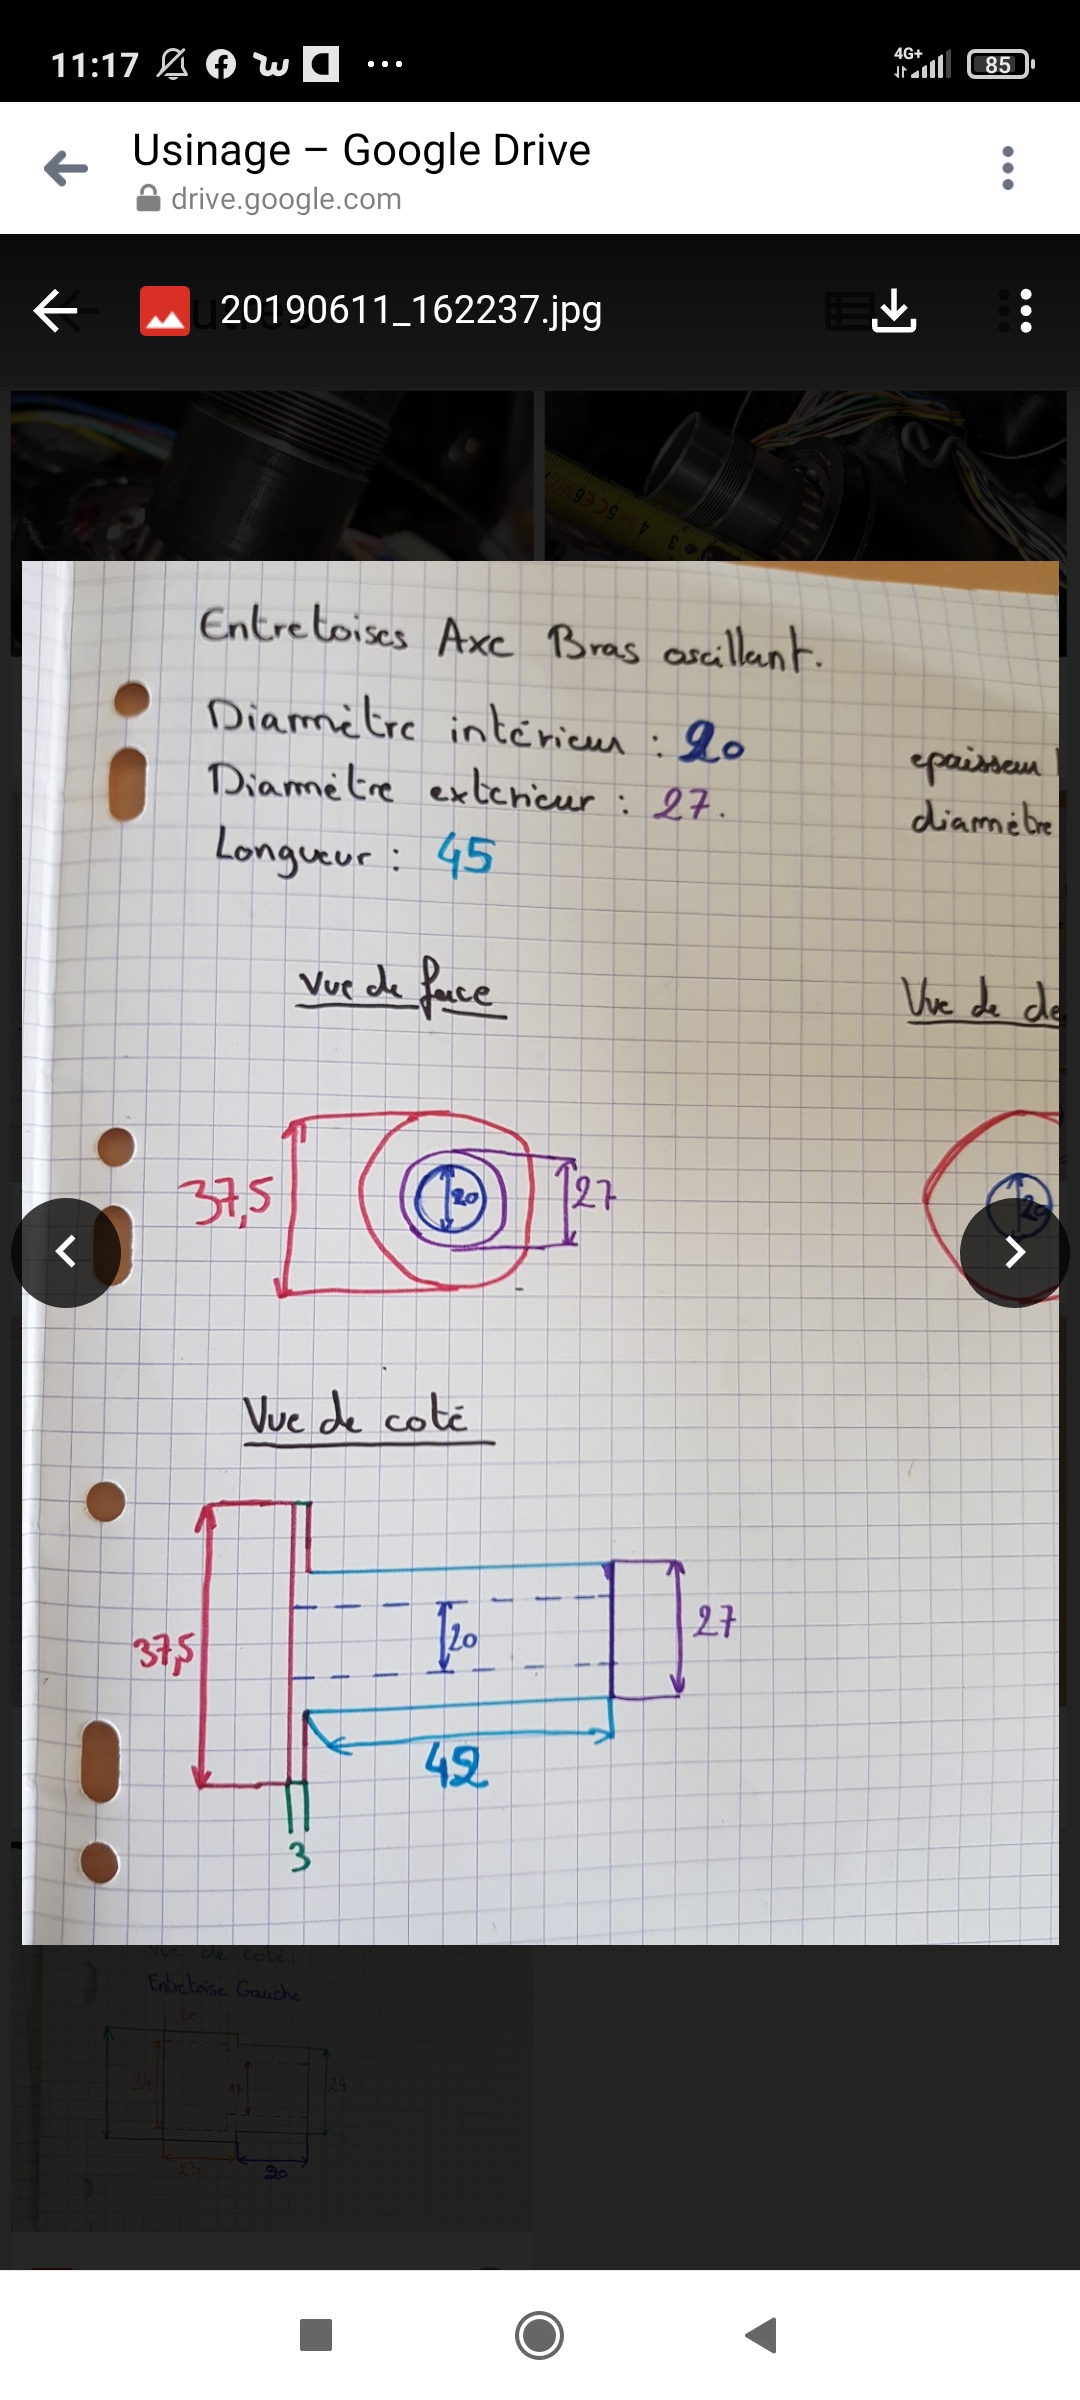 11:17
4G+
85
Usinage – Google Drive
drive.google.com
20190611_162237.jpg
Entretoises Axe Bras oscillant.
Diamètre intérieur : 20
Diamètre exterieur : 27.
Longueur : 45
epaisseur
diamètre
Vue de face
Vue de de
37,5
20
27
20
Vue de coté
37,5
20
27
42
3
Vue de coté
Entretoise Gauche
24
17
24
23
20